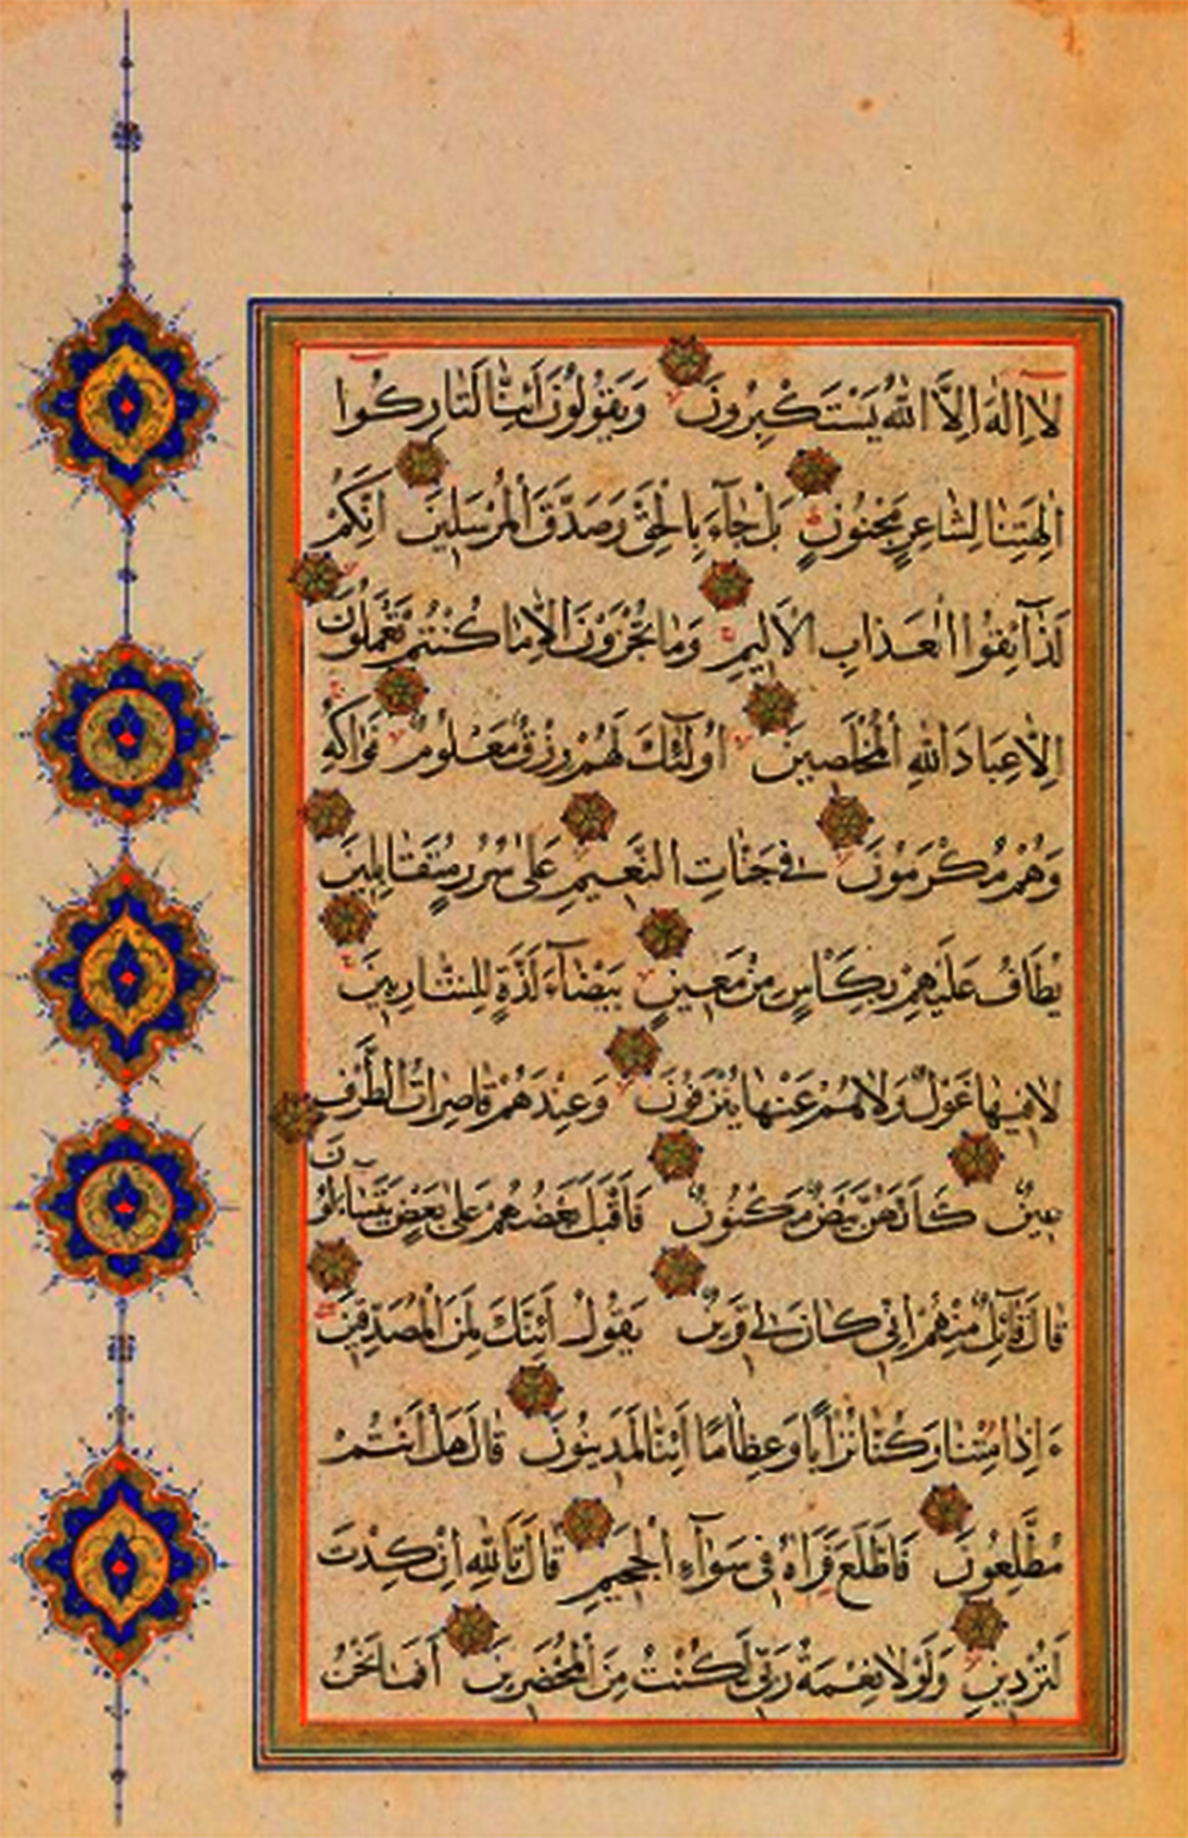 لَا إِلٰهَ إِلَّا اللّٰهُ يَسْتَكْبِرُونَ وَيَقُولُونَ أَئِنَّا لَتَارِكُوا
اٰلِهَتِنَا لِشَاعِرٍ مَجْنُونٍ بَلْ جَآءَ بِالْحَقِّ وَصَدَّقَ الْمُرْسَلِينَ اِنَّكُمْ
لَذَآئِقُوا الْعَذَابِ الْاَلِيمِ وَمَا تُجْزَوْنَ اِلَّا مَا كُنْتُمْ تَعْمَلُونَ
اِلَّا عِبَادَ اللّٰهِ الْمُخْلَصِينَ اُولٰٓئِكَ لَهُمْ رِزْقٌ مَعْلُومٌ فَوَاكِهُ
وَهُمْ مُكْرَمُونَ فِي جَنَّاتِ النَّعِيمِ عَلٰى سُرُرٍ مُتَقَابِلِينَ
يُطَافُ عَلَيْهِمْ بِكَاْسٍ مِنْ مَعِينٍ بَيْضَآءَ لَذَّةٍ لِلشَّارِبِينَ
لَا فِيهَا غَوْلٌ وَلَا هُمْ عَنْهَا يُنْزَفُونَ وَعِنْدَهُمْ قَاصِرَاتُ الطَّرْفِ
عِينٌ كَاَنَّهُنَّ بَيْضٌ مَكْنُونٌ فَاَقْبَلَ بَعْضُهُمْ عَلٰى بَعْضٍ يَتَسَآءَلُونَ
قَالَ قَآئِلٌ مِنْهُمْ اِنِّي كَانَ لِي قَرِينٌ يَقُولُ اَئِنَّكَ لَمِنَ الْمُصَدِّقِينَ
ءَاِذَا مِتْنَا وَكُنَّا تُرَابًا وَعِظَامًا اَئِنَّا لَمَدِينُونَ قَالَ هَلْ اَنْتُمْ
مُطَّلِعُونَ فَاطَّلَعَ فَرَاٰهُ فِي سَوَآءِ الْجَحِيمِ قَالَ تَاللّٰهِ اِنْ كِدْتَ
لَتُرْدِينِ وَلَوْلَا نِعْمَةُ رَبِّي لَكُنْتُ مِنَ الْمُحْضَرِينَ اَفَمَا نَحْنُ